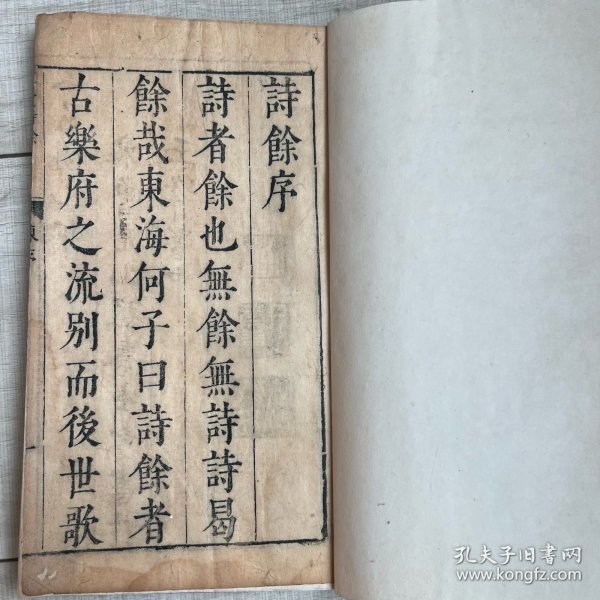 詩餘序
詩者餘也無餘無詩詩曷
餘哉東海何子曰詩餘者
古樂府之流別而後世歌
孔夫子旧书网
www.kongfz.com